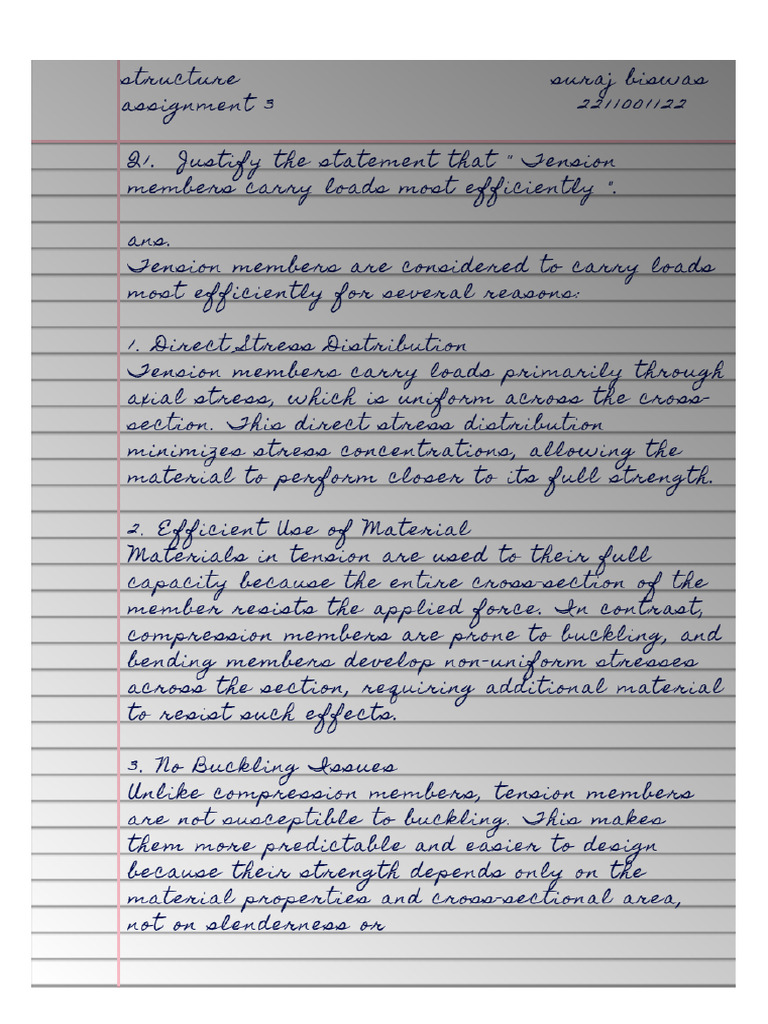 structure
suraj biswas
assignment 3
2211001122
Q1. Justify the statement that " Tension
members carry loads most efficiently ".
ans.
Tension members are considered to carry loads
most efficiently for several reasons:
1. Direct Stress Distribution
Tension members carry loads primarily through
axial stress, which is uniform across the cross-
section. This direct stress distribution
minimizes stress concentrations, allowing the
material to perform closer to its full strength.
2. Efficient Use of Material
Materials in tension are used to their full
capacity because the entire cross-section of the
member resists the applied force. In contrast,
compression members are prone to buckling, and
bending members develop non-uniform stresses
across the section, requiring additional material
to resist such effects.
3. No Buckling Issues
Unlike compression members, tension members
are not susceptible to buckling. This makes
them more predictable and easier to design
because their strength depends only on the
material properties and cross-sectional area,
not on slenderness or